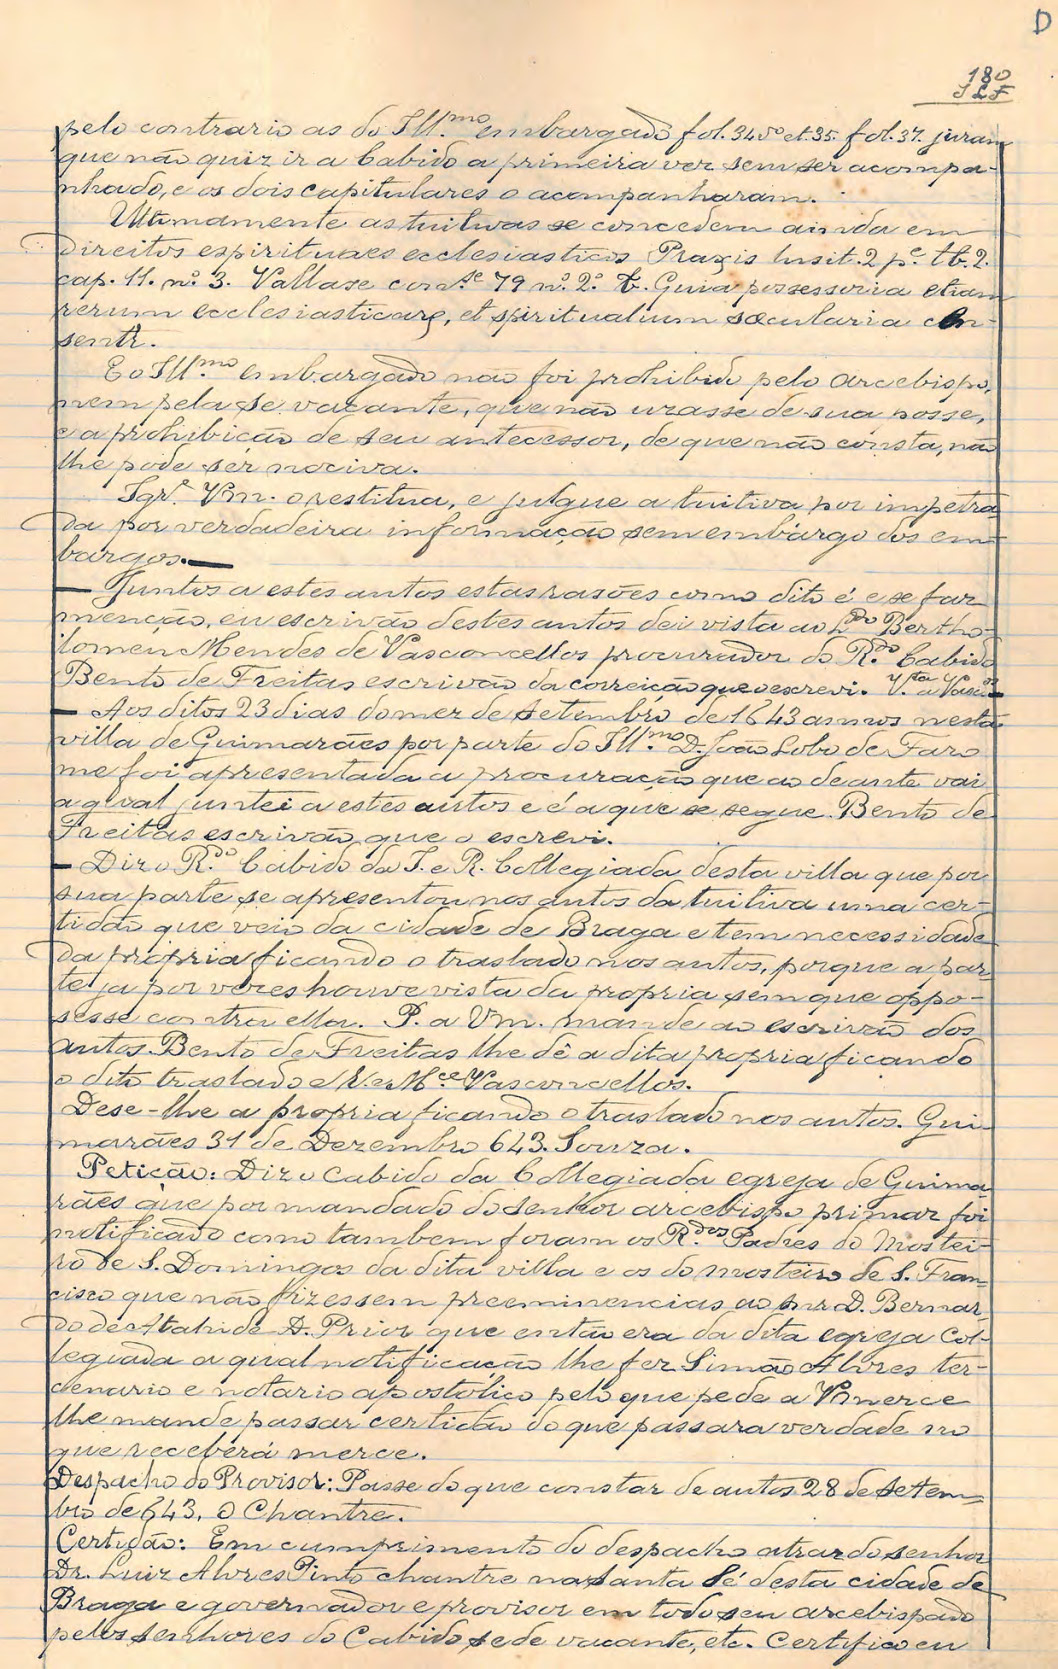 D
180
pelo contrario as do Ill.mo embargado fol. 34 vº et. 35. fol. 37. juram
que não quiz ir a Cabido a primeira vez sem ser acompa-
nhado, e os dois capitulares o acompanharam.
Ultimamente as tuitivas se concedem ainda em
direitos espirituaes ecclesiasticos Praxis Insit. 2 p.e tt. 2.
cap. 11. nº 3. Vallasc cons.se 79 nº 2º Guia possessoria etiam
rerum ecclesiasticarz, et spiritualium sæcularia cen-
sentr.
E o Ill.mo embargado nao foi prohibido pelo arcebispo,
nem pela se vacante, que não uzasse de sua posse,
e a prohibicão de seu antecessor, de que não consta, não
lhe pode sér nociva.
Vm. o restitua, e julgue a tuitiva por impetra
da por verdadeira informação sem embargo dos em-
bargos.—
— Juntos a estes autos estas rasões como dito é e se faz
menção, eu escrivão destes autos dei vista ao L.do Bertho-
lomeu Mendes de Vasconcellos procurador do R.do Cabido
Bento de Freitas escrivão da correicão que o escrevi. V.ta a Vasc.os—
— Aos ditos 23 dias do mez de Setembro de 1643 annos nesta
villa de Guimarães por parte do Ill.mo D. João Lobo de Faro
me foi apresentada a procuração que ao deante vai
a qual juntei a estes autos e é a que se segue. Bento de
Freitas escrivão que o escrevi.
— Diz o R.do Cabido da I. e R. Collegiada desta villa que por
sua parte se apresentou nos autos da tuitiva uma cer-
tidão que veio da cidade de Braga e tem necessidade
da propria ficando o traslado nos autos, porque a par-
te ja por vezes houve vista da propria sem que oppo-
sesse contra ella. P. a Vm. mande ao escrivão dos
autos Bento de Freitas lhe dê a dita propria ficando
o dito traslado e R. M.ce Vasconcellos.
Dese-lhe a propria ficando o traslado nos autos. Gui-
marães 31 de Dezembro 643. Souza.
Petição: Diz o Cabido da Collegiada egreja de Guima
rães que por mandado do senhor arcebispo primaz foi
notificado como tambem foram os R.dos Padres do Mostei-
ro de S. Domingos da dita villa e os do mosteiro de S. Fran-
cisco que não fizessem preeminencias ao snr D. Bernar-
do de Atahide D. Prior que então era da dita egreja Col-
legiada a qual notificação lhe fez Simão Alvres ter-
cenario e notario apostólico pelo que pede a Vmerce
lhe mande passar certidão do que passara verdade no
que receberá merce.
Despacho do Provisor: Passe do que constar de autos 28 de Setem-
bro de 643. O Chantre.
Certidão: Em cumprimento do despacho atraz do senhor
Dr. Luiz Alvres Pinto chantre na santa Sé desta cidade de
Braga e governador e provisor em todo seu arcebispado
pelos senhores do Cabido sede vacante, etc. Certifico eu